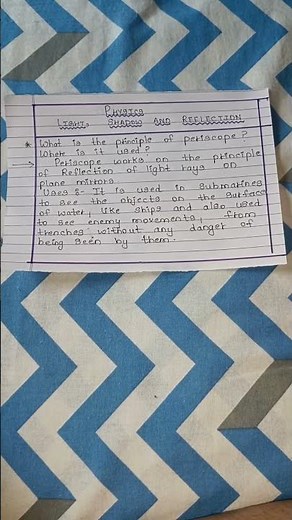 Physics
Light, Shadow and Reflection
* What is the principle of periscope?
Where is it used?
→ Periscope works on the principle
of Reflection of light rays on
plane mirrors
Uses :- It is used in submarines
to see the objects on the surface
of water, like ships and also used
to see enemy movements, from
trenches without any danger of
being seen by them.